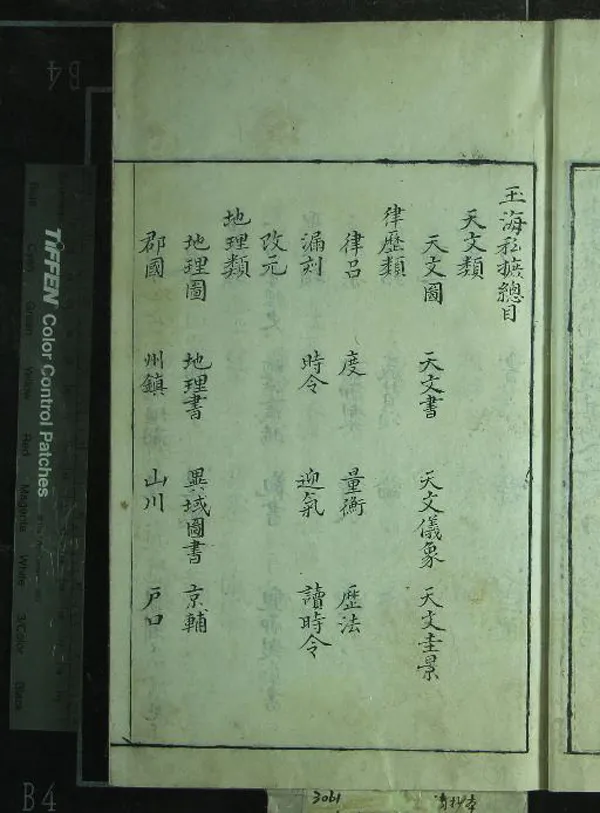 玉海私擴總目
天文類
天文圖 天文書 天文儀象 天文圭景
律歷類
律呂 度 量衡 歷法
漏刻 時令 迎氣 讀時令
改元
地理類
地理圖 地理書 異域圖書 京輔
郡國 州鎮 山川 戶口
TIFFEN Color Control Patches
B4
B4
3061